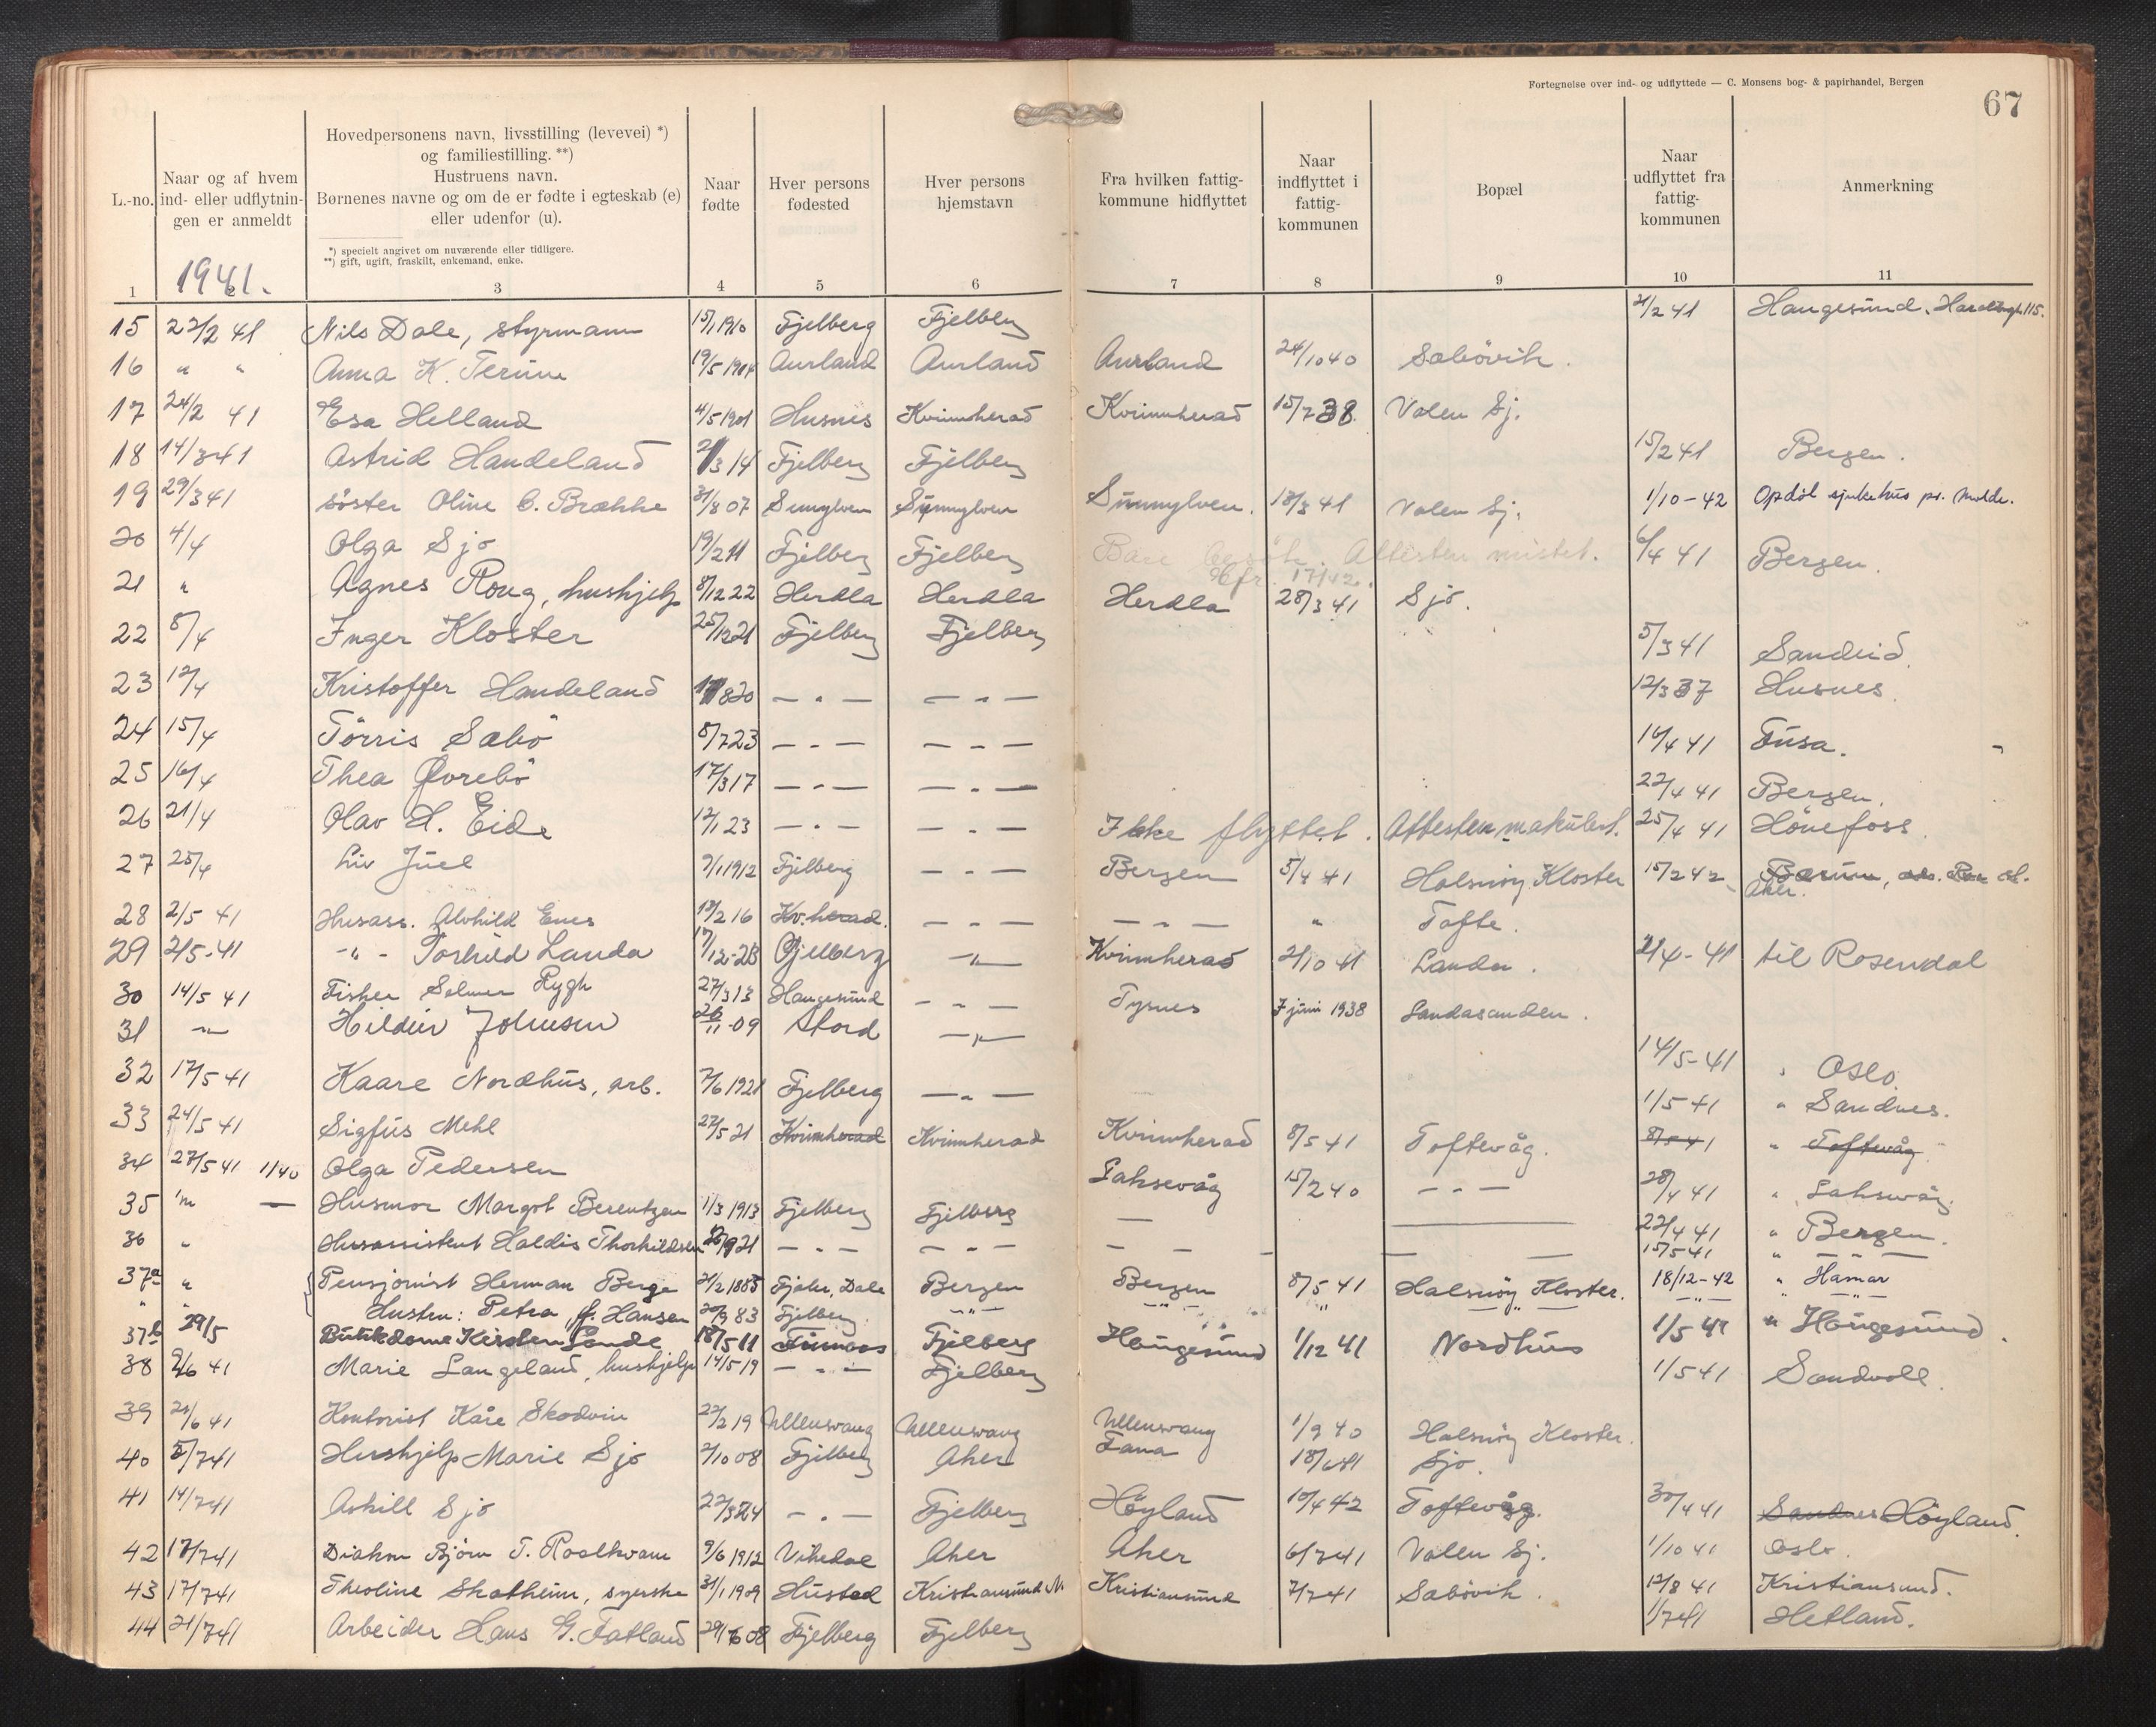 Fortegnelse over ind- og udflyttede — C. Monsens bog- & papirhandel, Bergen
67
L.-no.
Naar og af hvem ind- eller udflytningen er anmeldt
Hovedpersonens navn, livsstilling (levevei) *)
og familiestilling. **)
Hustruens navn.
Børnenes navne og om de er fødte i egteskab (e)
eller udenfor (u).
*) specielt angivet om nuværende eller tidligere.
**) gift, ugift, fraskilt, enkemand, enke.
Naar fødte
Hver persons fødested
Hver persons hjemstavn
Fra hvilken fattigkommune hidflyttet
Naar indflyttet i fattigkommunen
Bopæl
Naar udflyttet fra fattigkommunen
Anmerkning
1 2 3 4 5 6 7 8 9 10 11
1941.
15 22/2 41 Nils Dale, styrmann 15/1 1910 Fjelberg Fjelberg 21/2 41 Haugesund. 115.
16 " " Anna K. Terum 19/5 1904 Aurland Aurland Aurland 24/10 40 Sæbövik.
17 24/2 41 Esa Helland 4/5 1901 Husnes Kvinnherad Kvinnherad 15/7 38. Valen Sj.
18 14/3 41 Astrid Handeland 3 14 Fjelberg Fjelberg 15/2 41 Bergen.
19 29/3 41 söster Oline C. Brække 31/8 07 Sunnylven Sunnylven Sunnylven. 18/3 41 Valen Sj. 1/10-42 Opdöl sjukehus pr. Molde.
20 4/4 Olga Sjo 19/2 11 Fjelberg Fjelberg Bare besök. Attesten mistet. 6/4 41 Bergen.
21 " Agnes Roug, hushjelp 8/12 22 Herdla Herdla Herdla 28/3 41 Sjo.
22 8/4 Inger Kloster 25/12 21 Fjelberg Fjelberg 5/3 41 Sandeid.
23 12/4 Kristoffer Handeland 8 20 — " — — " — 12/3 37 Husnes.
24 15/4 Törris Sæbö 8/7 23 — " — — " — 14/4 41 Fusa.
25 16/4 Thea Øvrebö 17/3 17 — " — — " — 22/4 41 Bergen.
26 21/4 Olav H. Eide 12/1 23 — " — — " — Ikke flyttet. Attesten makulert. 25/4 41 Hönefoss.
27 25/4 Liv Juel 7/1 1912 Fjelberg — " — Bergen 5/4 41 Halsnöy Kloster 15/2 42 Bærum, Aker.
28 2/5 41 Husass. Alvhild Enes 13/2 16 Kv.herad. — " — — " — " Tofte.
29 2/5-41 -"- Torhild Landa 17/12-23 Fjelberg —"— Kvinnherad 2/10 41 Landa. 2/4-41 til Rosendal
30 14/5 41 Fisker Selmer Rygh 27/3 13 Haugesund — " — Tysnes 7 juni 1938 Sandasanden.
31 —"— Hildur Johnsen 26/11-09 Stord —"— 14/5-41 " Oslo.
32 17/5 41 Kaare Nordhus, arb. 7/6 1921 Fjelberg — " — 1/5 41 " Sandnes.
33 24/5 41 Sigfus Mehl 27/5 21 Kvinnherad Kvinnherad Kvinnherad 8/5 41 Toftevåg. 8/5 41 " Toftevåg.
34 27/5 41 1/1 40 Olga Pedersen Laksevåg 15/2 40 — " — 28/4 41 " Laksevåg.
35 " — Husmor Margot Berentzen 1/3 1913 Fjelberg Fjelberg — — 22/4 41 " Bergen.
36 " Husassistent Haldis Thorkildsen 9 21 — " — — " — — — — — — 15/5 41 " — —
37a " Pensjonist Herman Berge 21/2 1885 Fjelbr, Dale Bergen Bergen 8/5 41 Halsnöy Kloster. 18/12-42 " Hamar
" " Hustru: Petra f. Hansen 20/9 83 Fjelberg —"— —"— " " —"— " —"—
37b 29/5 Butikdame Kirsten Sande 18/5 11 Finnaas Fjelberg Haugesund 1/12 41 Nordhus 1/5 41 " Haugesund.
38 2/6 41 Marie Langeland, hushjelp 14/5 19 — " — Fjelberg 1/5 41 Sandvoll.
39 21/6 41 Kontorist Kåre Skodvin 22/2 19 Ullensvang Ullensvang Ullensvang 1/9 40 Halsnöy Kloster.
40 5/7 41 Hushjelp Marie Sjo 2/10 08 Fjelberg Aker Fana 18/6 41 Sjo.
41 14/7 41 Askill Sjo 22/3 24 — " — Fjelberg Höyland 10/4 42 Toftevåg. 30/4 41 Sandnes Höyland.
42 17/7 41 Diakon Björn T. Roalkvam 9/6 1912 Vikedal Aker Aker 6/7 41 Valen Sj. 1/10 41 Oslo.
43 17/7 41 Theoline Skotheim, syerske 31/1 1909 Hustad Kristiansund N. Kristiansund 7/7 41 Sæbövik. 12/8 41 Kristiansund.
44 21/7 41 Arbeider Hans G. Fatland 29/6 08 Fjelberg Fjelberg 1/7 41 Hetland.